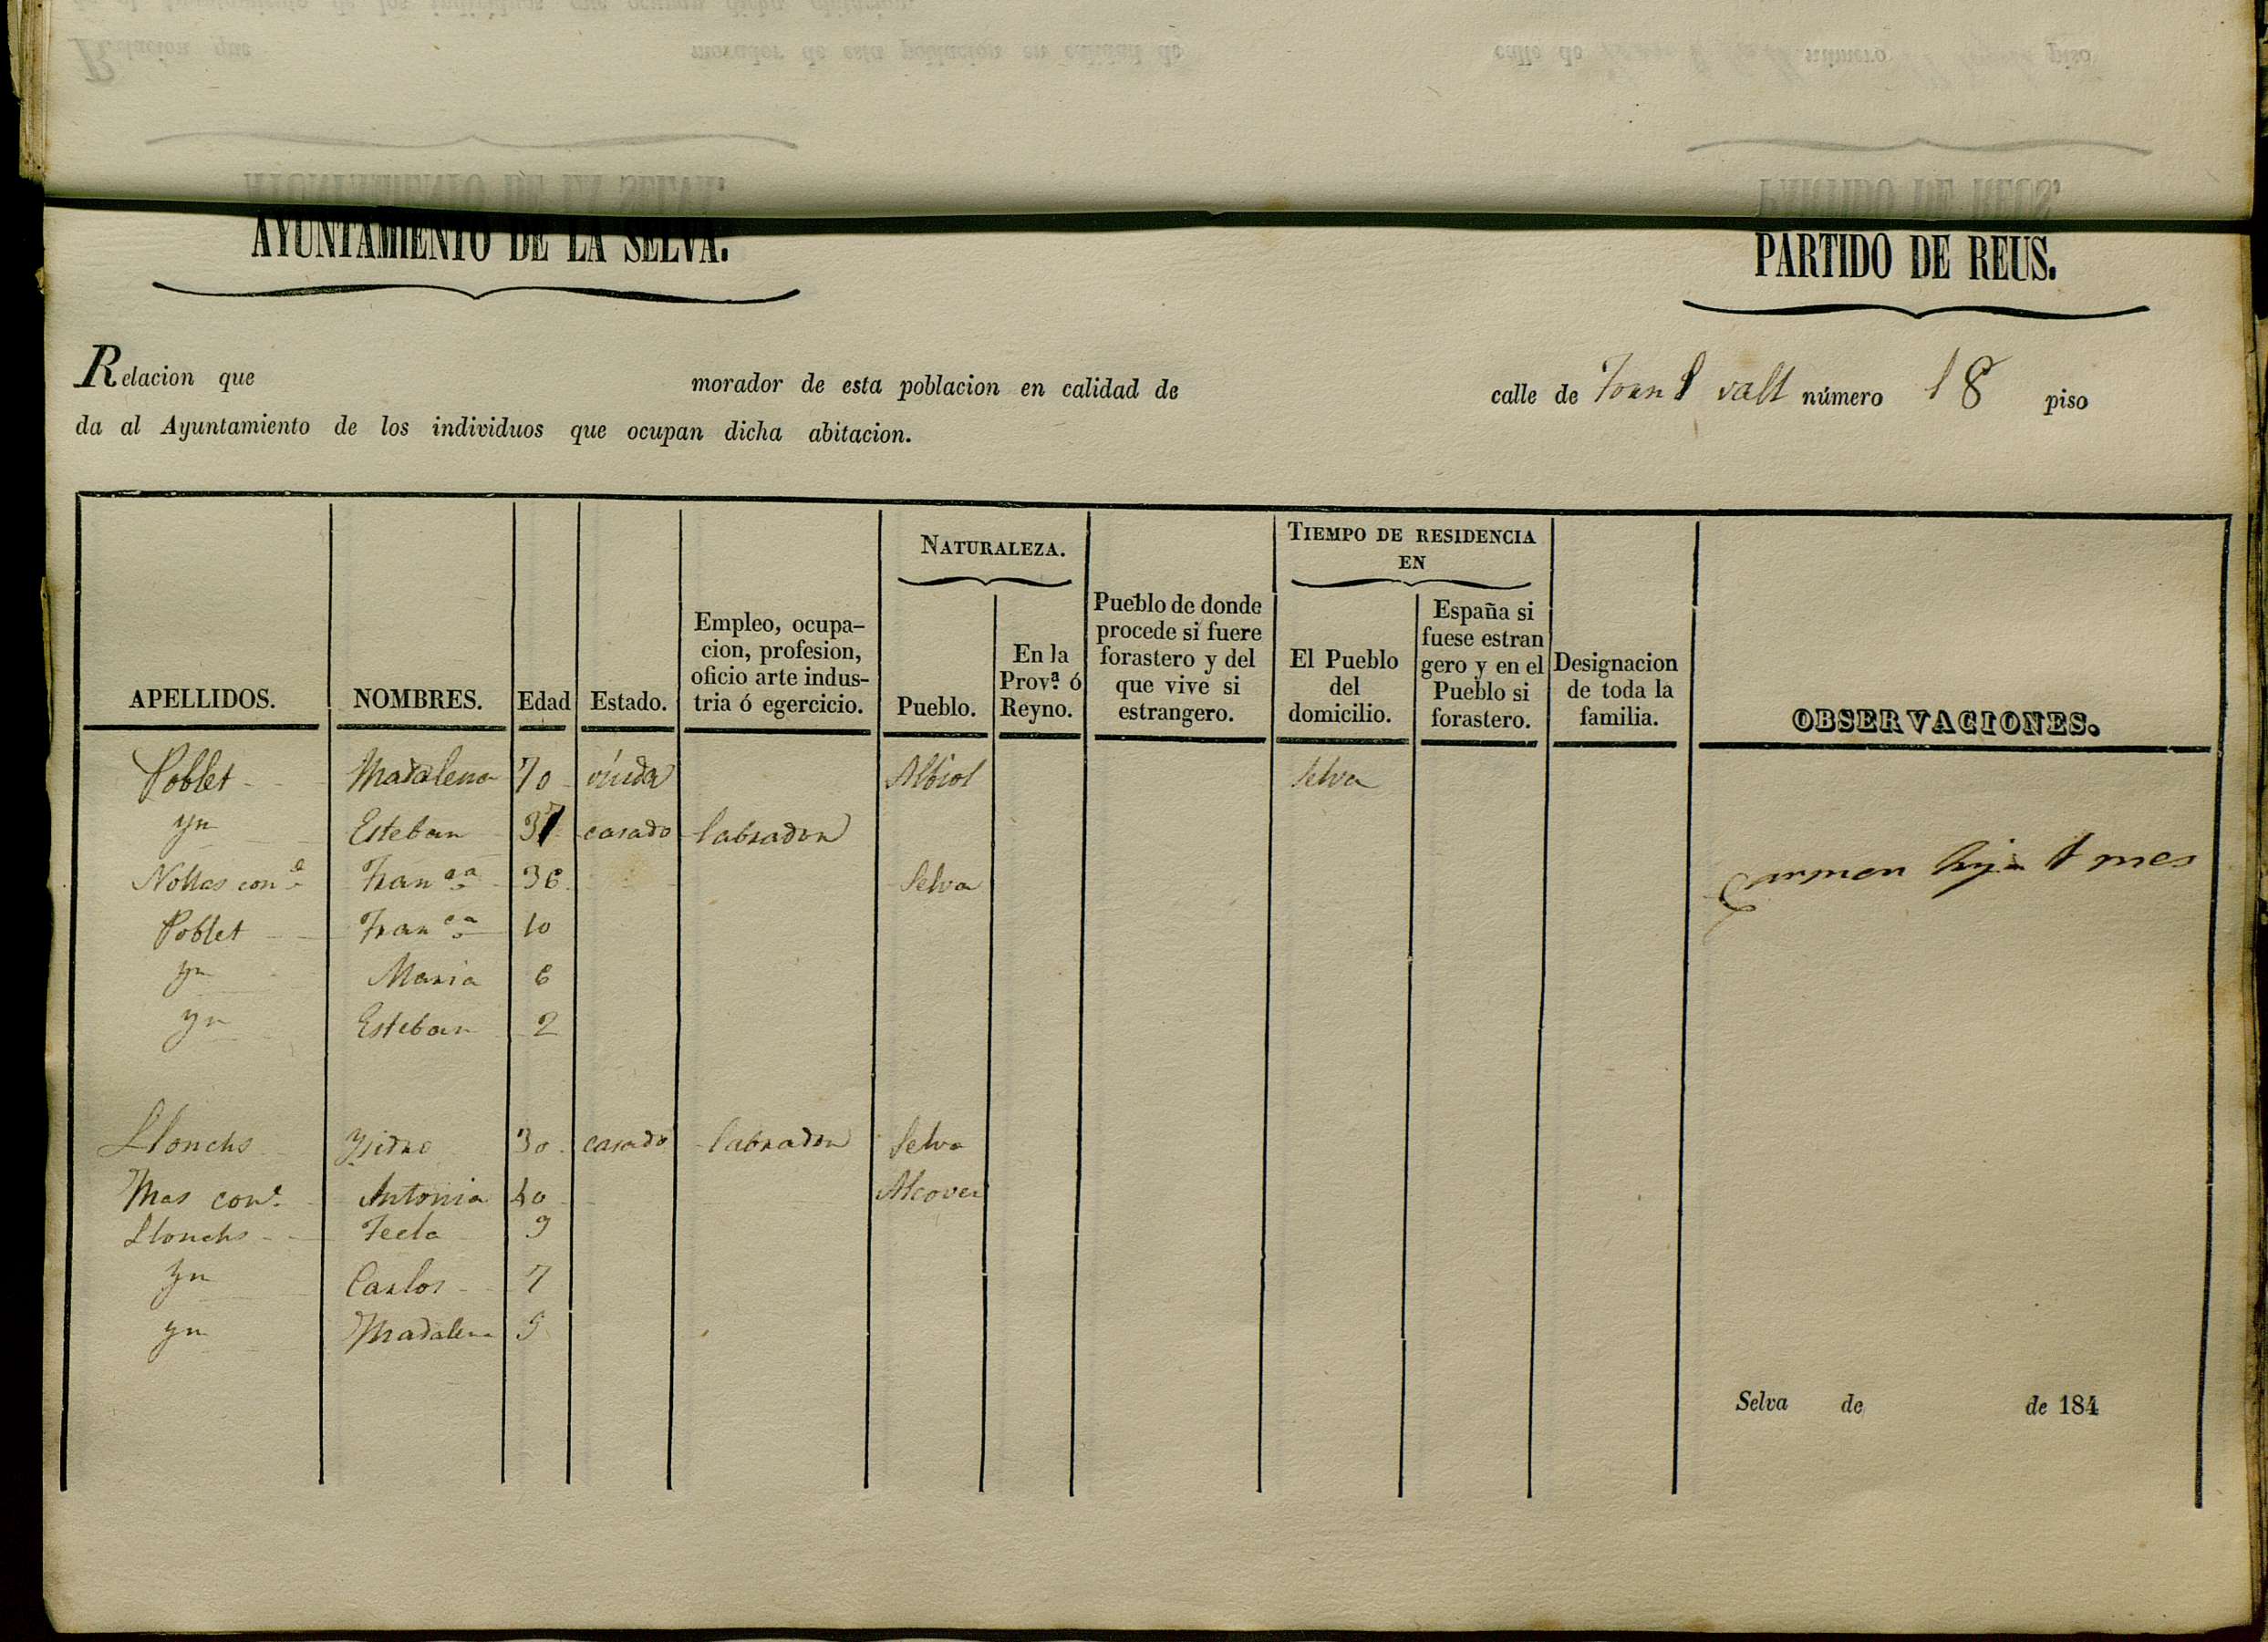 AYUNTAMIENTO DE LA SELVA. PARTIDO DE REUS.
Relacion que morador de esta poblacion en calidad de calle de valt número 18 piso
da al Ayuntamiento de los individuos que ocupan dicha abitacion.
APELLIDOS. NOMBRES. Edad Estado. Empleo, ocupa-cion, profesion, oficio arte indus-tria ó egercicio. NATURALEZA. Pueblo. En la Prov.ª ó Reyno. Pueblo de donde procede si fuere forastero y del que vive si estrangero. TIEMPO DE RESIDENCIA EN El Pueblo del domicilio. España si fuese estran gero y en el Pueblo si forastero. Designacion de toda la familia. OBSERVACIONES.
Poblet Madalena 70 viuda Albiol Selva
yn Esteban 37 casado labrador
Nollas con.e Fran.ca 36 Selva Carmen hija 1 mes
Poblet Fran.ca 10
yn Maria 6
yn Esteban 2
Llonchs Ysidro 30 casado labrador Selva
Mas con.e Antonia 40 Alcover
Llonchs Tecla 9
yn Carlos 7
yn Madalena 5
Selva de de 184